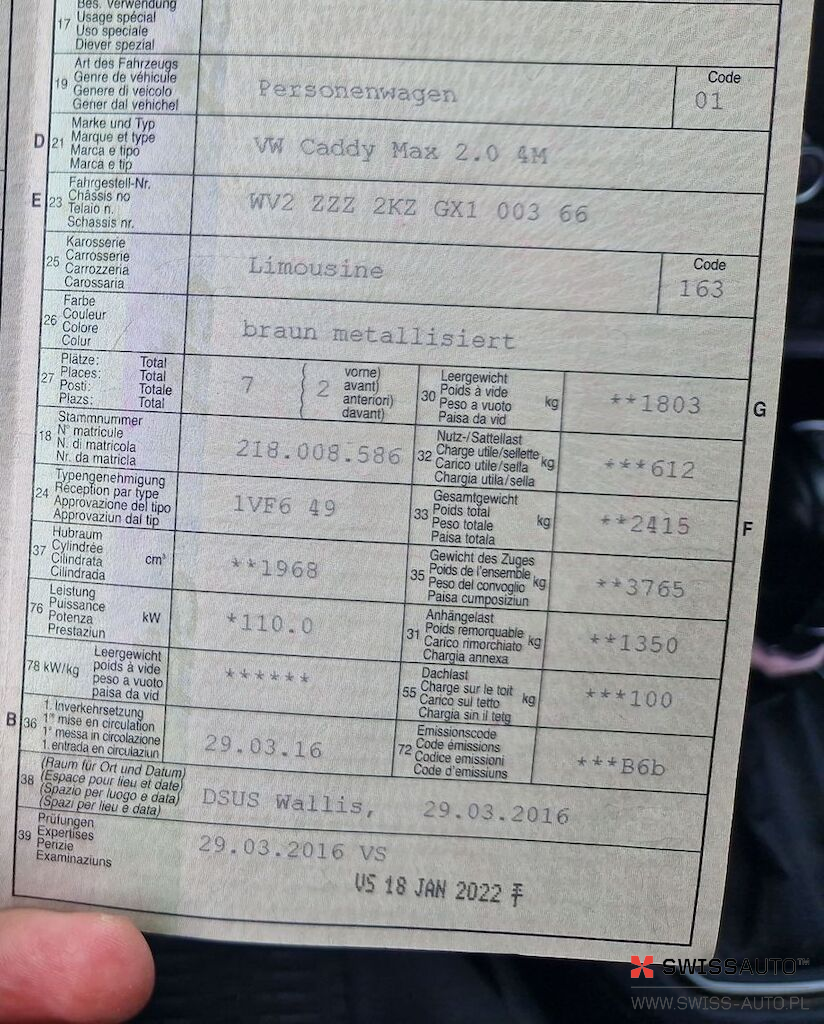 Bes. Verwendung
17 Usage spécial
Uso speciale
Diever spezial
19 Art des Fahrzeugs
Genre de véhicule
Genere di veicolo
Gener dal vehichel
Personenwagen
Code
01
D 21 Marke und Typ
Marque et type
Marca e tipo
Marca e tip
VW Caddy Max 2.0 4M
E 23 Fahrgestell-Nr.
Châssis no
Telaio n.
Schassis nr.
WV2 ZZZ 2KZ GX1 003 66
25 Karosserie
Carrosserie
Carrozzeria
Carossaria
Limousine
Code
163
26 Farbe
Couleur
Colore
Colur
braun metallisiert
27 Plätze: Total
Places: Total
Posti: Totale
Plazs: Total
7 ( 2 vorne)
avant)
anteriori)
davant)
30 Leergewicht
Poids à vide
Peso a vuoto
Paisa da vid
kg
**1803
G
18 Stammnummer
N° matricule
N. di matricola
Nr. da matricla
218.008.586
32 Nutz-/Sattellast
Charge utile/sellette
Carico utile/sella
Chargia utila/sella
kg
***612
24 Typengenehmigung
Réception par type
Approvazione del tipo
Approvaziun dal tip
1VF6 49
33 Gesamtgewicht
Poids total
Peso totale
Paisa totala
kg
**2415
F
37 Hubraum
Cylindrée
Cilindrata
Cilindrada
cm³
**1968
35 Gewicht des Zuges
Poids de l'ensemble
Peso del convoglio
Paisa cumposiziun
kg
**3765
76 Leistung
Puissance
Potenza
Prestaziun
kW
*110.0
31 Anhängelast
Poids remorquable
Carico rimorchiato
Chargia annexa
kg
**1350
78 kW/kg Leergewicht
poids à vide
peso a vuoto
paisa da vid
******
55 Dachlast
Charge sur le toit
Carico sul tetto
Chargia sin il tetg
kg
***100
B 36 1. Inverkehrsetzung
1re mise en circulation
1a messa in circolazione
1. entrada en circulaziun
29.03.16
72 Emissionscode
Code émissions
Codice emissioni
Code d'emissiuns
***B6b
38 (Raum für Ort und Datum)
(Espace pour lieu et date)
(Spazio per luogo e data)
(Spazi per lieu e data)
DSUS Wallis, 29.03.2016
39 Prüfungen
Expertises
Perizie
Examinaziuns
29.03.2016 VS
VS 18 JAN 2022
SWISSAUTO™
WWW.SWISS-AUTO.PL